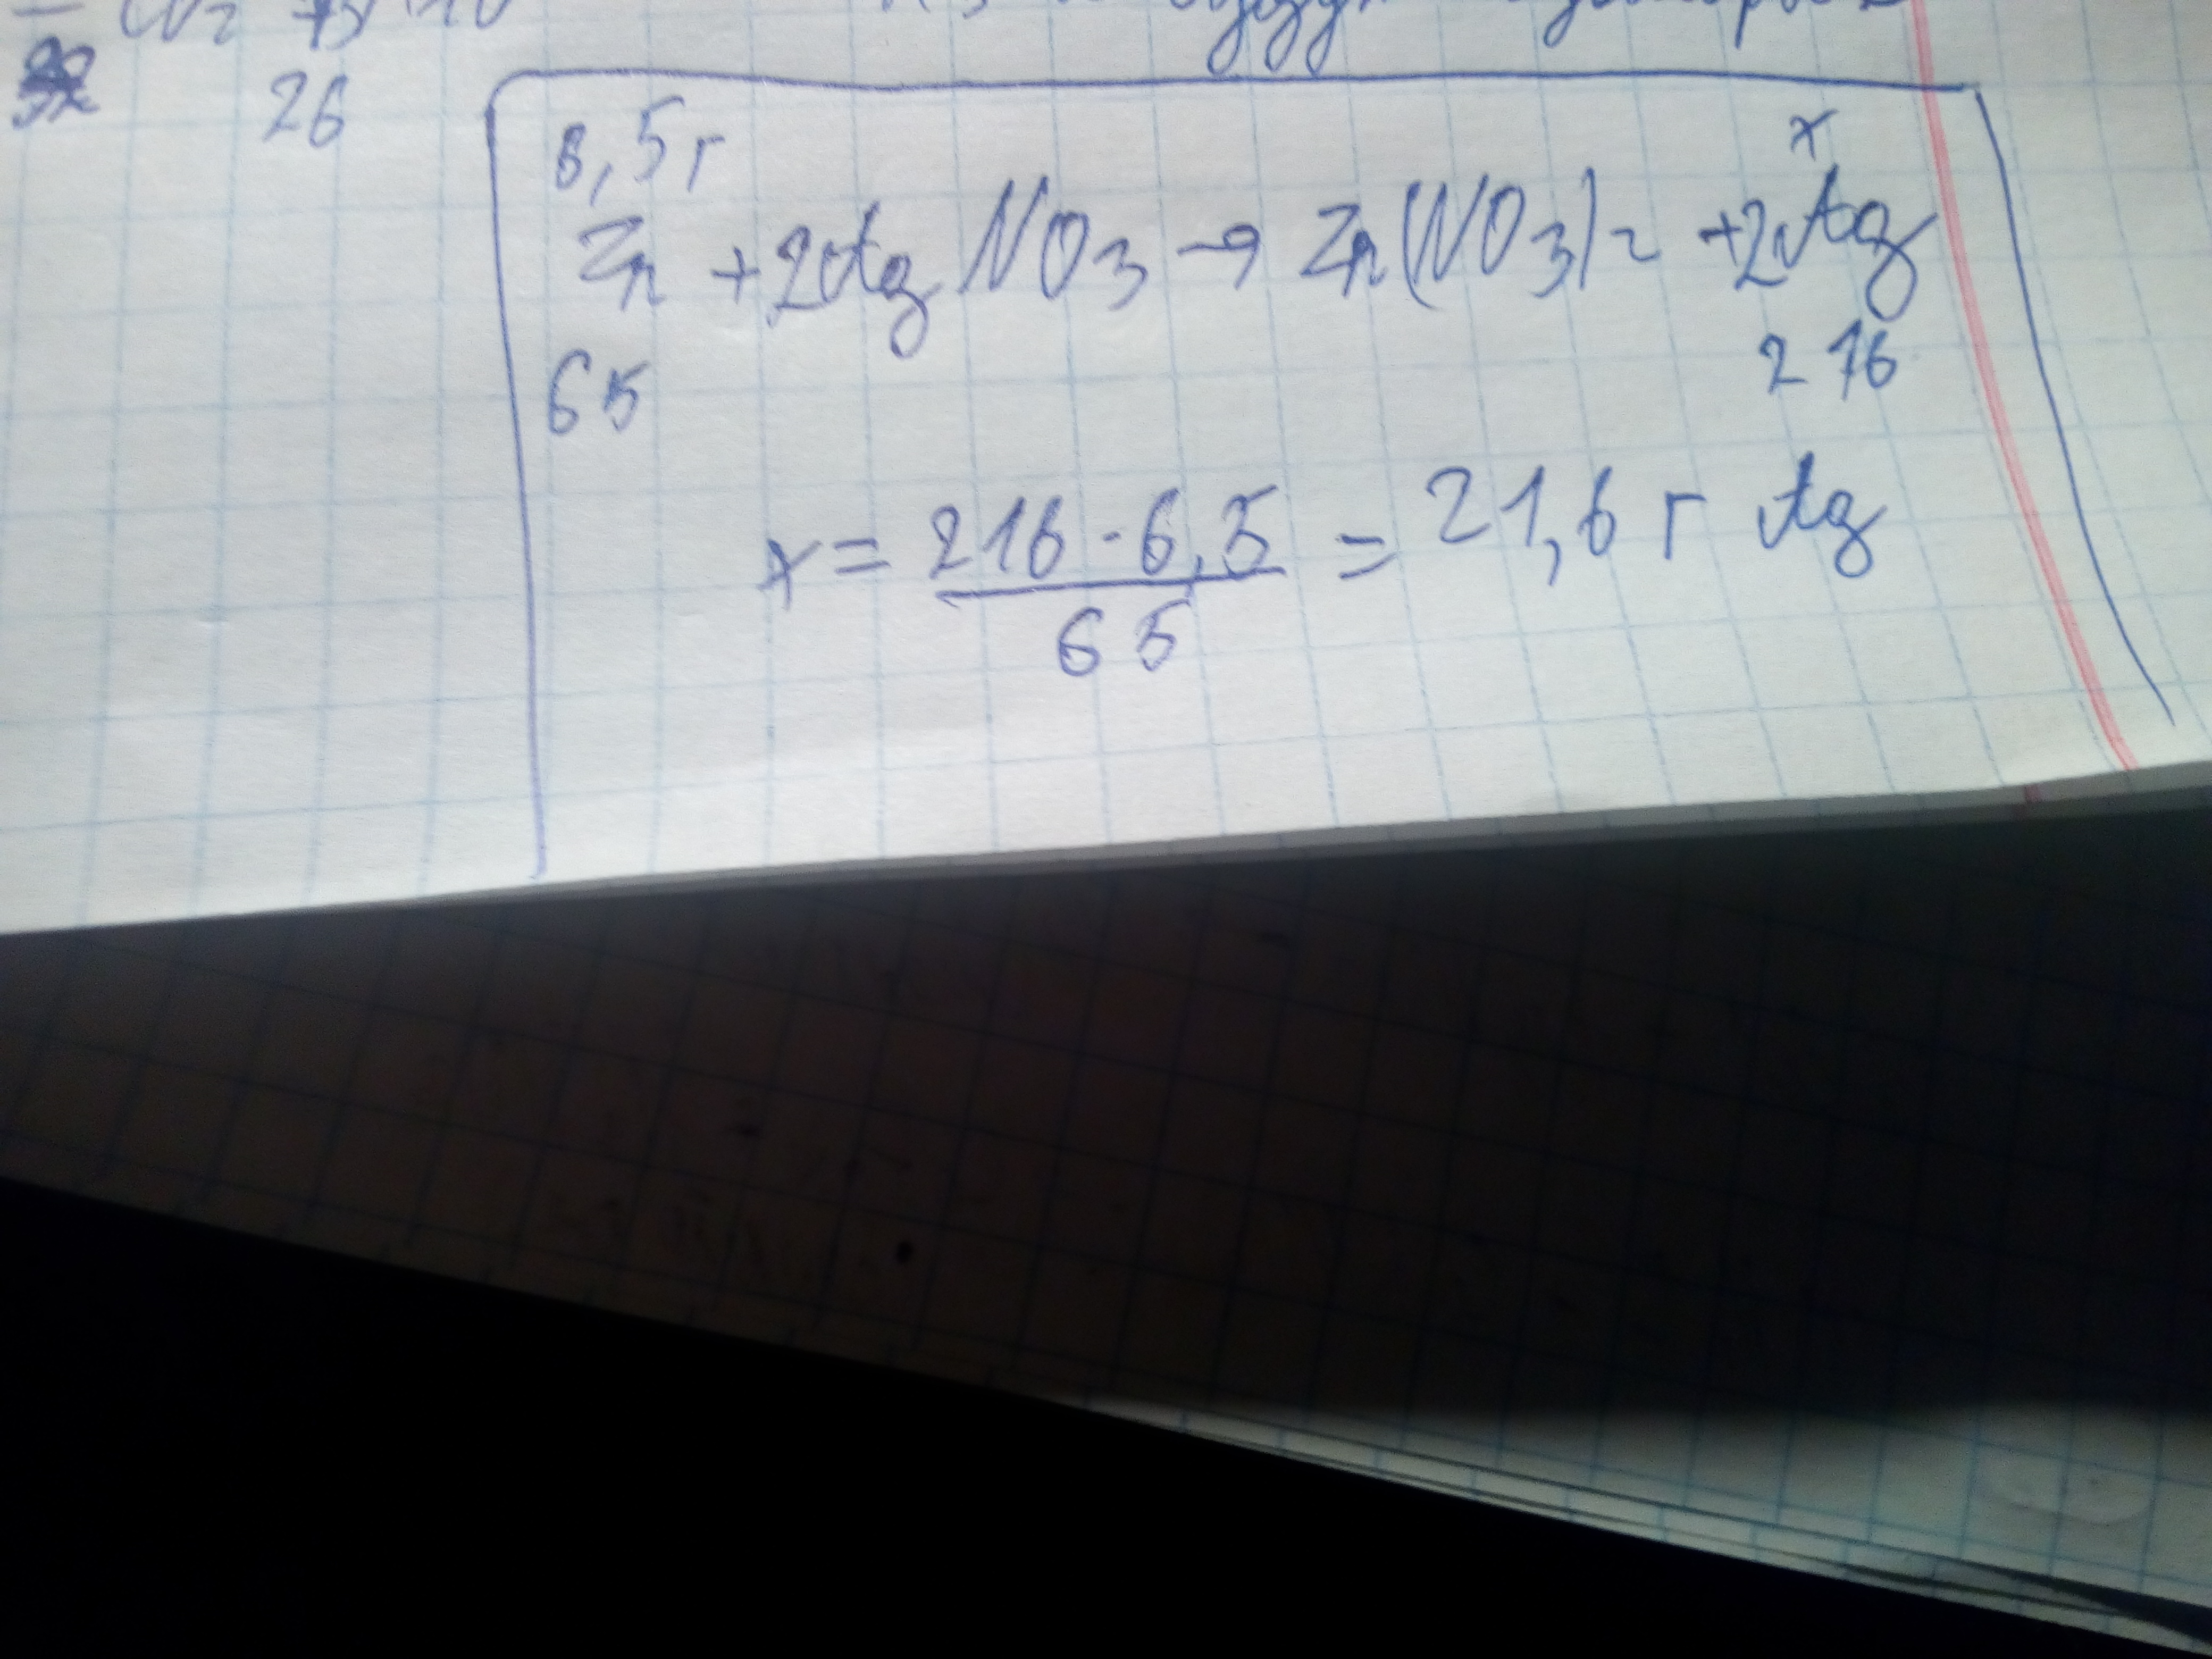 26
6,5г x
Zn + 2AgNO3 → Zn(NO3)2 + 2Ag
65 216
x = 216 · 6,5 / 65 = 21,6 г Ag